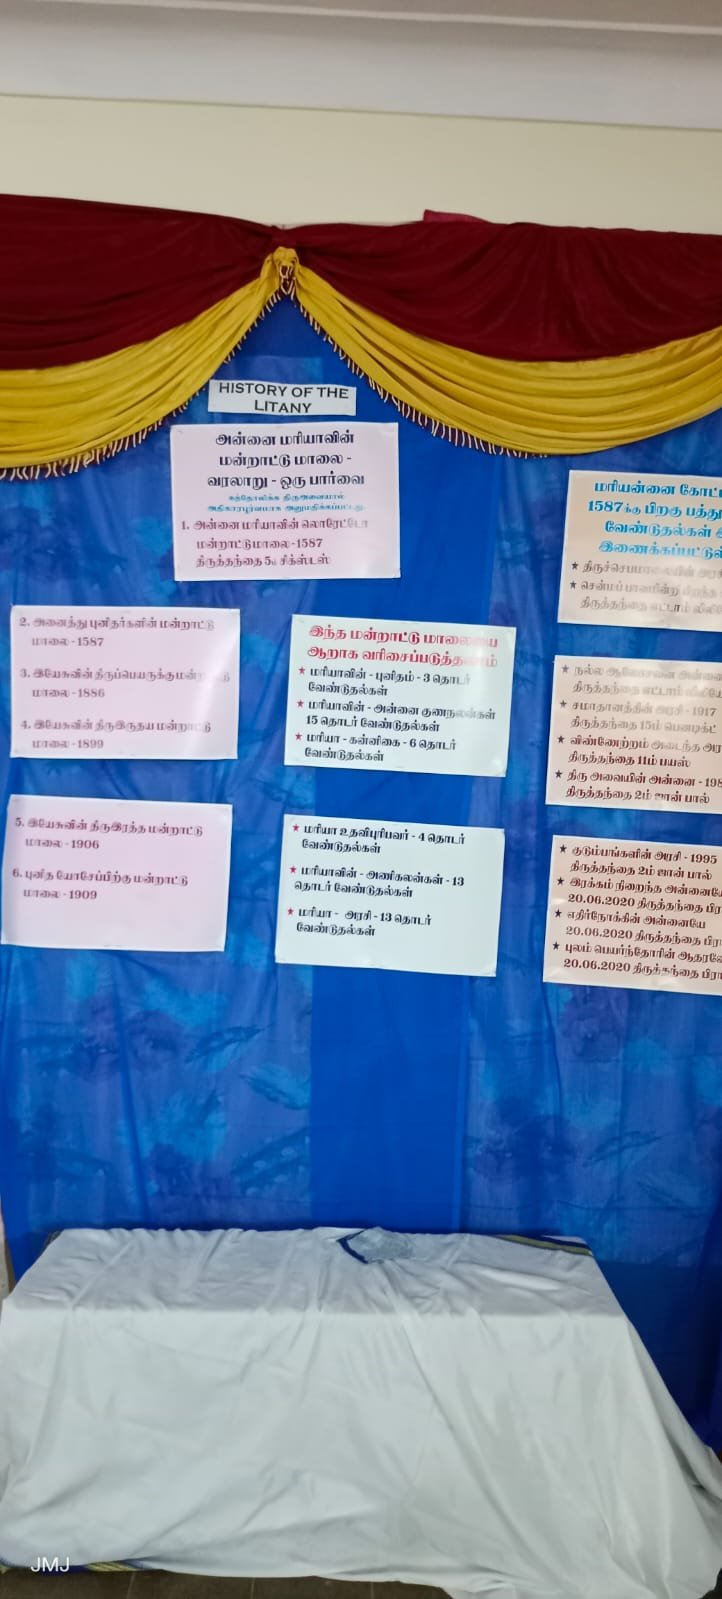 HISTORY OF THE
LITANY
அன்னை மரியாவின்
மன்றாட்டு மாலை -
வரலாறு - ஒரு பார்வை
கத்தோலிக்க திருஅவையால்
அதிகாரபூர்வமாக அனுமதிக்கப்பட்டது
1. அன்னை மரியாவின் லொரேட்டோ
மன்றாட்டுமாலை -1587
திருத்தந்தை 5ம் சிக்ஸ்டஸ்
2. அனைத்து புனிதர்களின் மன்றாட்டு
மாலை - 1587
3. இயேசுவின் திருப்பெயருக்கு
மாலை - 1886
4. இயேசுவின் திருஇருதய மன்றாட்டு
மாலை - 1899
5. இயேசுவின் திருஇரத்த மன்றாட்டு
மாலை - 1906
6. புனித யோசேப்பிற்கு மன்றாட்டு
மாலை - 1909
இந்த மன்றாட்டு மாலையை
ஆறாக வரிசைப்படுத்தலாம்
★ மரியாவின் - புனிதம் - 3 தொடர்
வேண்டுதல்கள்
★ மரியாவின் - அன்னை குணநலன்கள்
15 தொடர் வேண்டுதல்கள்
★ மரியா - கன்னிகை - 6 தொடர்
வேண்டுதல்கள்
★ மரியா உதவிபுரிபவர் - 4 தொடர்
வேண்டுதல்கள்
★ மரியாவின் - அணிகலன்கள் - 13
தொடர் வேண்டுதல்கள்
★ மரியா - அரசி - 13 தொடர்
வேண்டுதல்கள்
மரியன்னை
1587க்கு பிறகு
வேண்டுதல்கள்
★ திருச்செபமாலையின்
★ சென்மப் பாவமின்றி பிறந்த
திருத்தந்தை எட்டாம்
★ நல்ல ஆலோசனை
திருத்தந்தை எட்டாம்
★ சமாதானத்தின் அரசி - 1917
திருத்தந்தை 15ம் பெனடிக்ட்
★ விண்ணேற்றம் அடைந்த
திருத்தந்தை 11ம் பயஸ்
★ திரு அவையின் அன்னை -
திருத்தந்தை 2ம் ஜான் பால்
★ குடும்பங்களின் அரசி - 1995
திருத்தந்தை 2ம் ஜான் பால்
★ இரக்கம் நிறைந்த
20.06.2020 திருத்தந்தை
★ எதிர்நோக்கின் அன்னையே
20.06.2020 திருத்தந்தை
★ புலம் பெயர்ந்தோரின்
20.06.2020 திருத்தந்தை
JMJ